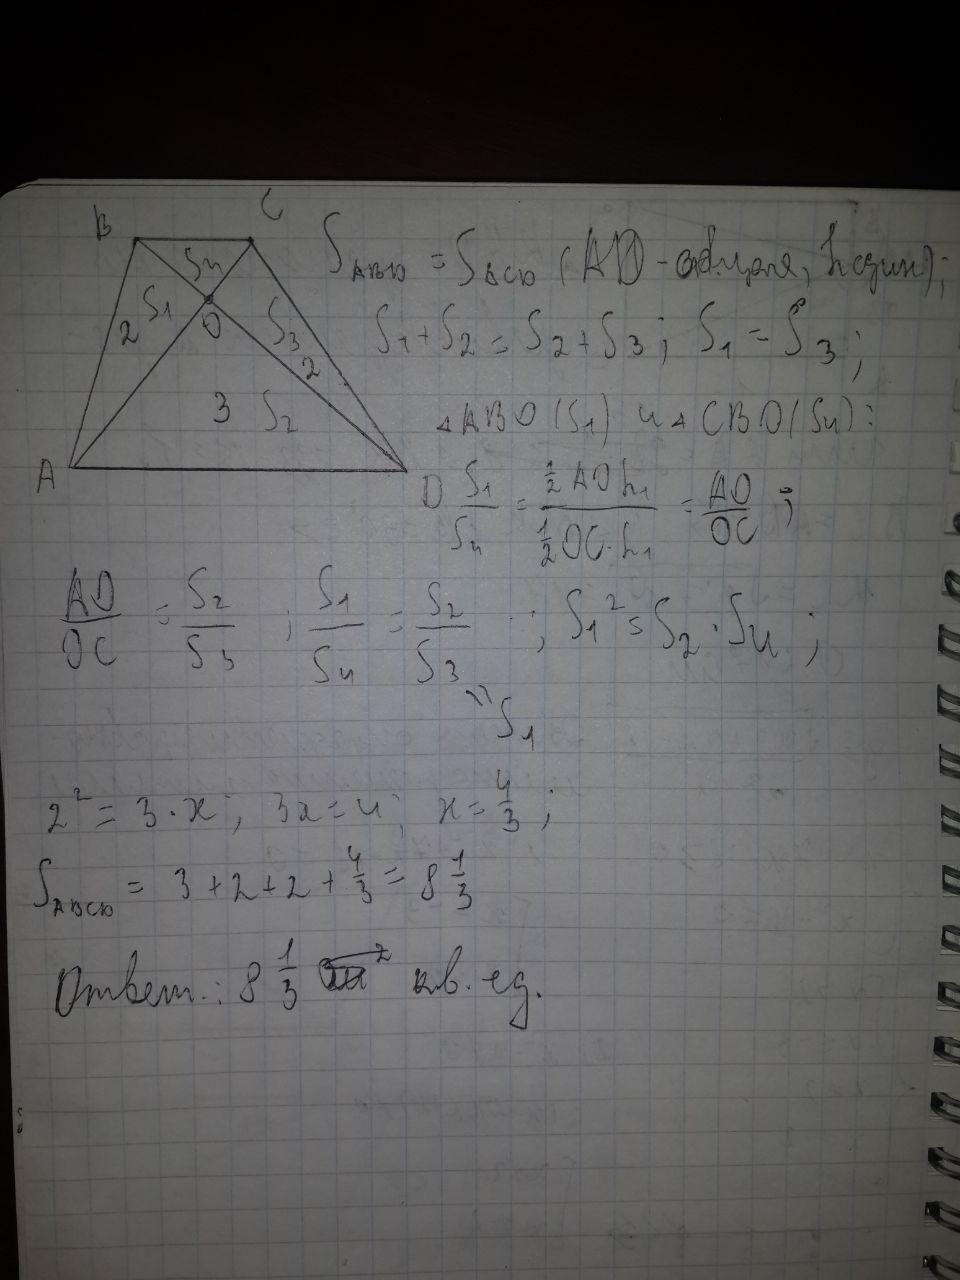 B C
S4
S1 O S3
2 2
3 S2
A D
S_ABD = S_ACD (AD - общая, h един);
S1 + S2 = S2 + S3; S1 = S3;
△ABO (S1) и △CBO (S4):
S1/S4 = (1/2 AO h1)/(1/2 OC · h1) = AO/OC;
AO/OC = S2/S3; S1/S4 = S2/S3; S1² = S2 · S4;
S1
2² = 3 · x; 3x = 4; x = 4/3;
S_ABCD = 3 + 2 + 2 + 4/3 = 8 1/3
Ответ.: 8 1/3 кв. ед.